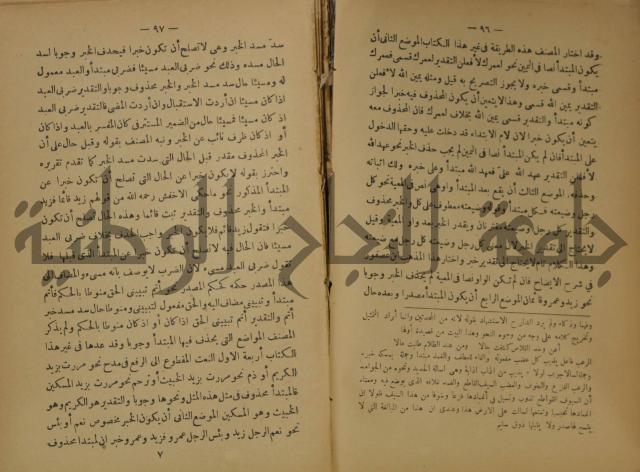 — ٩٦ —
وقد اختار المصنف هذه الطريقة في غير هذا الكتاب الموضع الثاني أن
يكون المبتدأ نصا في اليمين نحو لعمرك لأفعلن التقدير لعمرك قسمي فعمرك
مبتدأ وقسمي خبره ولا يجوز التصريح به قيل ومثله يمين الله لأفعلن
التقدير يمين الله قسمي وهذا لا يتعين أن يكون المحذوف فيه خبرا لجواز
كونه مبتدأ والتقدير قسمي يمين الله بخلاف لعمرك فان المحذوف معه
يتعين أن يكون خبرا لان لام الابتداء قد دخلت عليه وحقها الدخول
على المبتدأ فان لم يكن المبتدأ نصا في اليمين لم يجب حذف الخبر نحو عهد الله
لأفعلن التقدير عهد الله على فعهد الله مبتدأ وعلى خبره ولك اثباته
وحذفه. الموضع الثالث أن يقع بعد المبتدأ واو هي نص في المعية نحو كل
رجل وضيعته فكل مبتدأ وقوله وضيعته معطوف على كل والخبر محذوف
والتقدير كل رجل وضيعته مقترنان ويقدر الخبر بعد واو المعية وقيل
لا يحتاج الى تقدير الخبر لان معنى كل رجل وضيعته كل رجل مع ضيعته
وهذا كلام تام لا يحتاج الى تقدير خبر واختار هذا المذهب ابن عصفور
في شرح الايضاح فان لم تكن الواو نصا في المعية لم يحذف الخبر وجوبا
نحو زيد وعمرو قائمان الموضع الرابع أن يكون المبتدأ مصدرا وبعده حال
— ٩٧ —
سد مسد الخبر وهي لا تصلح أن تكون خبرا فيحذف الخبر وجوبا لسد
الحال مسده وذلك نحو ضربى العبد مسيئا فضربى مبتدأ والعبد معمول
له ومسيئا حال سد مسد الخبر والخبر محذوف وجوبا والتقدير ضربى العبد
اذا كان مسيئا ان أردت الاستقبال وان أردت المضى فالتقدير ضربى العبد
اذ كان مسيئا فمسيئا حال من الضمير المستتر فى كان المفسر بالعبد واذا كان
أو اذ كان ظرف نائب عن الخبر ونبه المصنف بقوله وقبل حال على أن
الخبر المحذوف مقدر قبل الحال التى سدت مسد الخبر كما تقدم تقريره
واحترز بقوله لا يكون خبرا عن الحال التى تصلح أن تكون خبرا عن
المبتدأ المذكور نحو ما حكى الاخفش رحمه الله من قولهم زيد قائما فزيد
مبتدأ والخبر محذوف والتقدير ثبت قائما وهذه الحال تصلح أن تكون
خبرا فتقول زيد قائم فلا يكون الخبر واجب الحذف بخلاف ضربى العبد
مسيئا فان الحال فيه لا تصلح أن تكون خبرا عن المبتدأ الذى قبلها فلا
تقول ضربى العبد مسىء لان الضرب لا يوصف بأنه مسىء والمضاف الى
هذا المصدر حكمه كحكم المصدر نحو أتم تبيينى الحق منوطا بالحكم فأتم
مبتدأ وتبيينى مضاف اليه والحق مفعول لتبيينى ومنوطا حال سد مسد خبر
أتم والتقدير أتم تبيينى الحق اذا كان أو اذ كان منوطا بالحكم ولم يذكر
المصنف المواضع التى يحذف فيها المبتدأ وجوبا وقد عدها فى غير هذا
الكتاب أربعة الاول النعت المقطوع الى الرفع فى مدح نحو مررت بزيد
الكريم أو ذم نحو مررت بزيد الخبيث أو ترحم نحو مررت بزيد المسكين
فالمبتدأ محذوف فى مثل هذه المثل ونحوها وجوبا والتقدير هو الكريم وهو
الخبيث وهو المسكين الموضع الثانى أن يكون الخبر مخصوص نعم أو بئس
نحو نعم الرجل زيد وبئس الرجل عمرو فزيد وعمرو خبران لمبتدا محذوف
٧